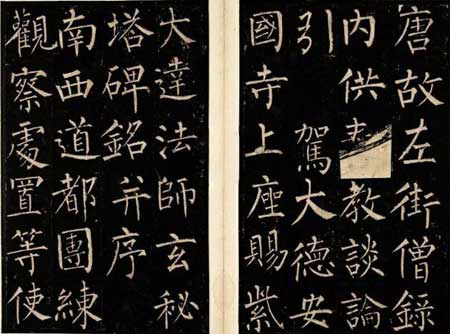 唐故左街僧録
内供奉教談論
引駕大德安
國寺上座賜紫
大達法師玄秘
塔碑銘并序
南西道都團練
觀察處置等使